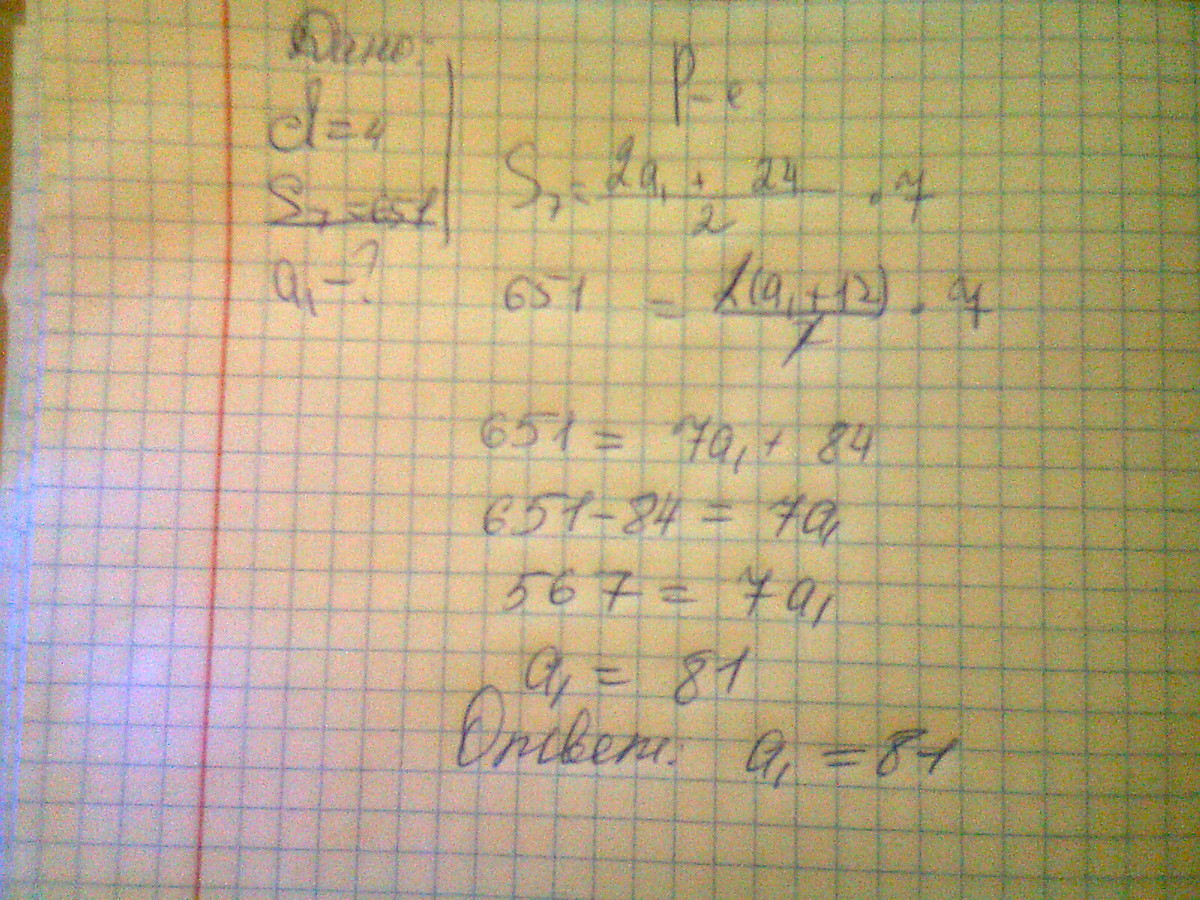 Дано:
d = 4
S₇ = 651
a₁ - ?
Р-е
S₇ = (2a₁ + 24)/2 · 7
651 = 2(a₁ + 12)/2 · 7
651 = 7a₁ + 84
651 - 84 = 7a₁
567 = 7a₁
a₁ = 81
Ответ: a₁ = 81